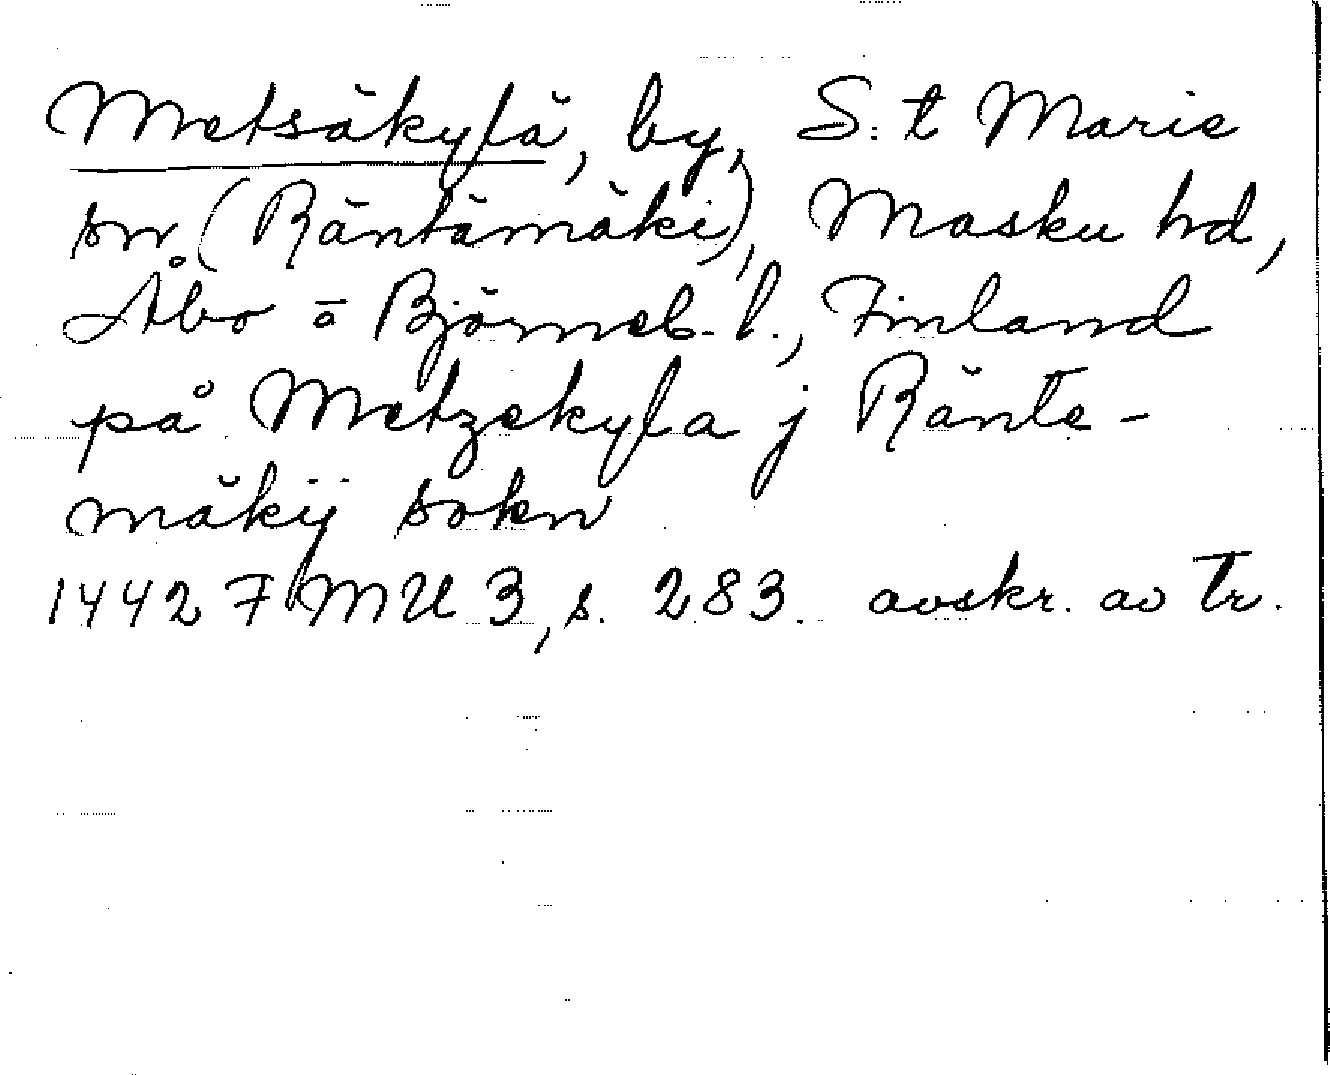 Metsäkylä, by, S:t Marie
sn (Räntämäki), Masku hd,
Åbo o Björneb. l., Finland
på Metzekyla j Ränte-
mäkÿ sokn
1442 FMU 3, s. 283. avskr. av tr.